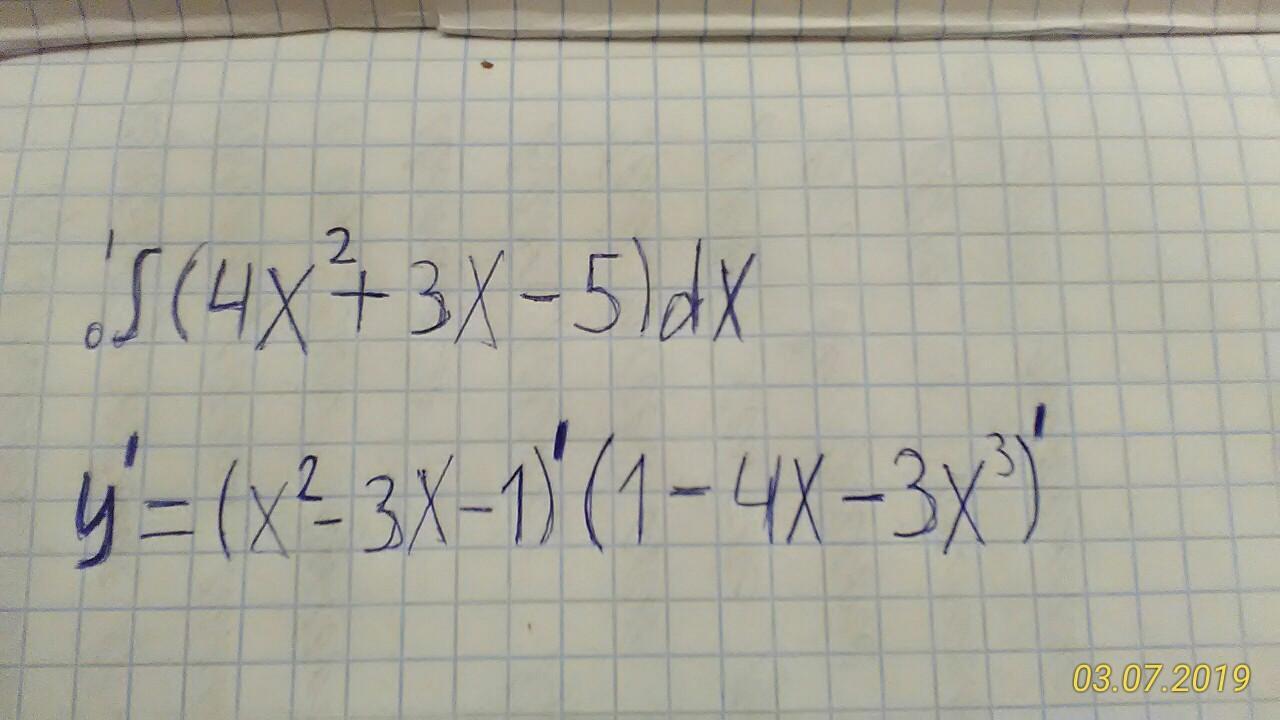 ₀¹∫(4x²+3x-5)dx
y'=(x²-3x-1)'(1-4x-3x³)'
03.07.2019